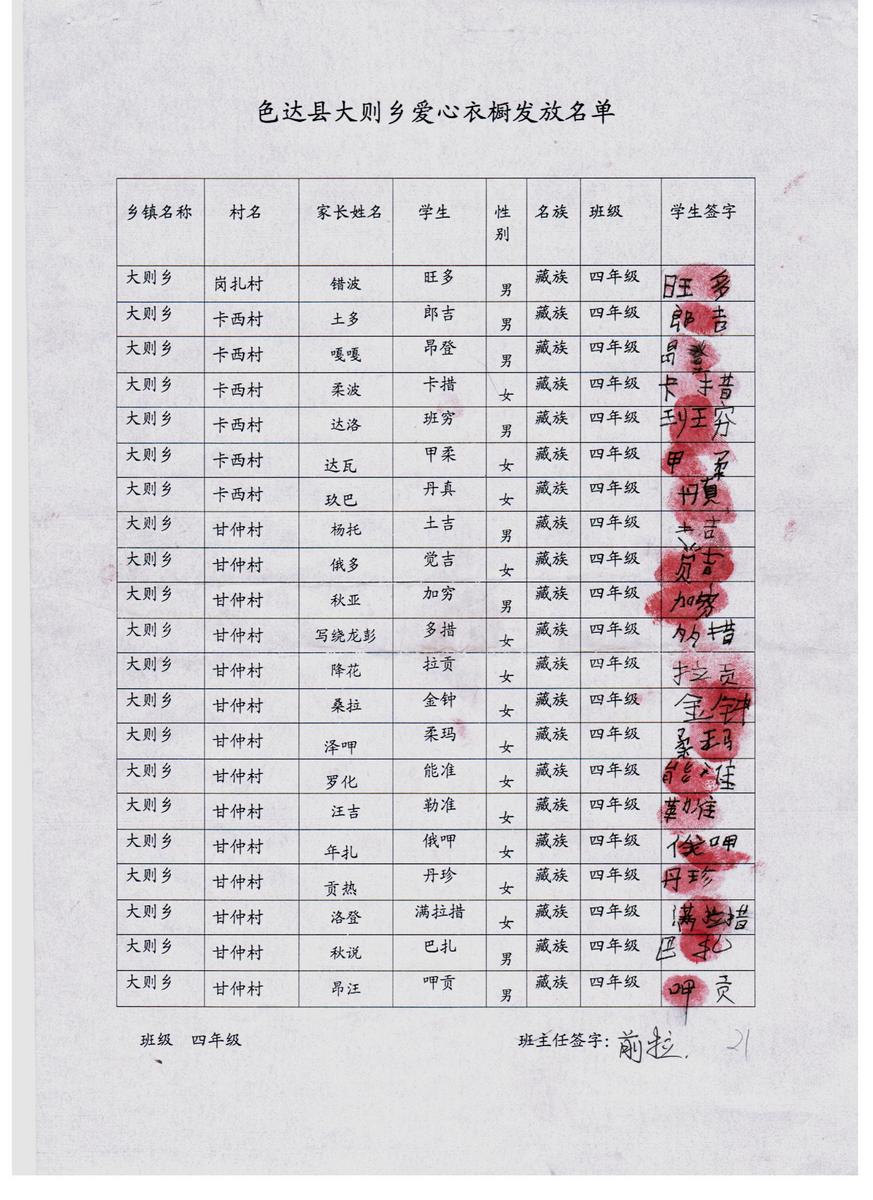 色达县大则乡爱心衣橱发放名单
乡镇名称 村名 家长姓名 学生 性别 名族 班级 学生签字
大则乡 岗扎村 错波 旺多 男 藏族 四年级 旺多
大则乡 卡西村 土多 郎吉 男 藏族 四年级 郎吉
大则乡 卡西村 嘎嘎 昂登 男 藏族 四年级 昂登
大则乡 卡西村 柔波 卡措 女 藏族 四年级 卡措
大则乡 卡西村 达洛 班穷 男 藏族 四年级 班穷
大则乡 卡西村 达瓦 甲柔 女 藏族 四年级 甲柔
大则乡 卡西村 玖巴 丹真 女 藏族 四年级 丹真
大则乡 甘仲村 杨托 土吉 男 藏族 四年级 土吉
大则乡 甘仲村 俄多 觉吉 女 藏族 四年级 觉吉
大则乡 甘仲村 秋亚 加穷 男 藏族 四年级 加穷
大则乡 甘仲村 写绕龙彭 多措 女 藏族 四年级 多措
大则乡 甘仲村 降花 拉贡 女 藏族 四年级 拉贡
大则乡 甘仲村 桑拉 金钟 女 藏族 四年级 金钟
大则乡 甘仲村 泽呷 柔玛 女 藏族 四年级 柔玛
大则乡 甘仲村 罗化 能准 女 藏族 四年级 能准
大则乡 甘仲村 汪吉 勒准 女 藏族 四年级 勒准
大则乡 甘仲村 年扎 俄呷 女 藏族 四年级 俄呷
大则乡 甘仲村 贡热 丹珍 女 藏族 四年级 丹珍
大则乡 甘仲村 洛登 满拉措 女 藏族 四年级 满拉措
大则乡 甘仲村 秋说 巴扎 男 藏族 四年级 巴扎
大则乡 甘仲村 昂汪 呷贡 男 藏族 四年级 呷贡
班级 四年级 班主任签字: 前拉. 21